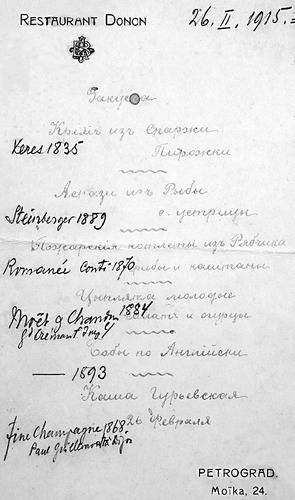 RESTAURANT DONON
26. II. 1915.=
Закуска
Кремъ изъ Спаржи
Xeres 1835
Пирожки
изъ Рыбы
Steinberger 1889
с. устрицы
Пожарскія котлеты изъ Рябчика
Romanée Conti 1870
грибы и каштаны
Цыплята молодые
Moët & Chandon 1884
Салатъ и огурцы
gd Crémant Imp
Бобы по Англійски
— 1893
Каша Гурьевская
26 Февраля
fine Champagne 1868
Paul
PETROGRAD.
Moïka, 24.